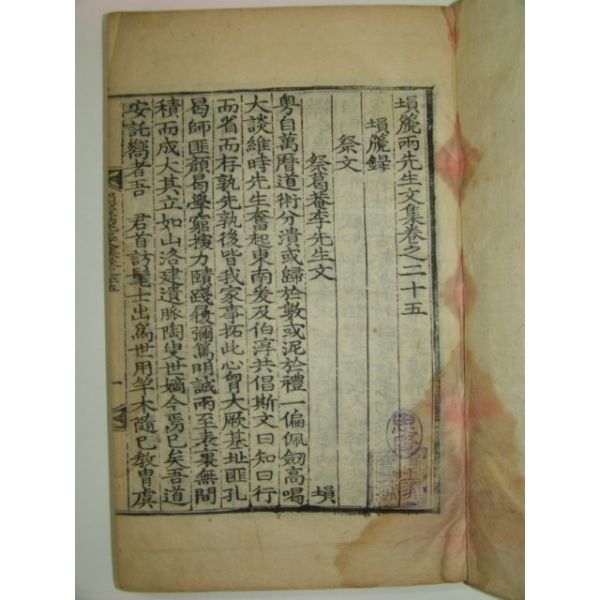 塤篪兩先生文集卷之二十五
塤篪錄
祭文
祭葛菴李先生文 塤
粤自萬曆道術分潰或歸於數或泥於禮一偏佩劒高喝
大談維時先生奮起東南爰及伯淳共倡斯文曰知曰行
而省而存孰先孰後皆我家事拓此心胷大厥基址匪孔
曷師匪顔曷學窮搜力賾踐履彌篤明誠兩至表裏無間
積而成大其立如山洛建遺脈陶叟世嫡今焉已矣吾道
安託嚮者吾 君首訪髦士出爲世用竿木隨已敎冑虞